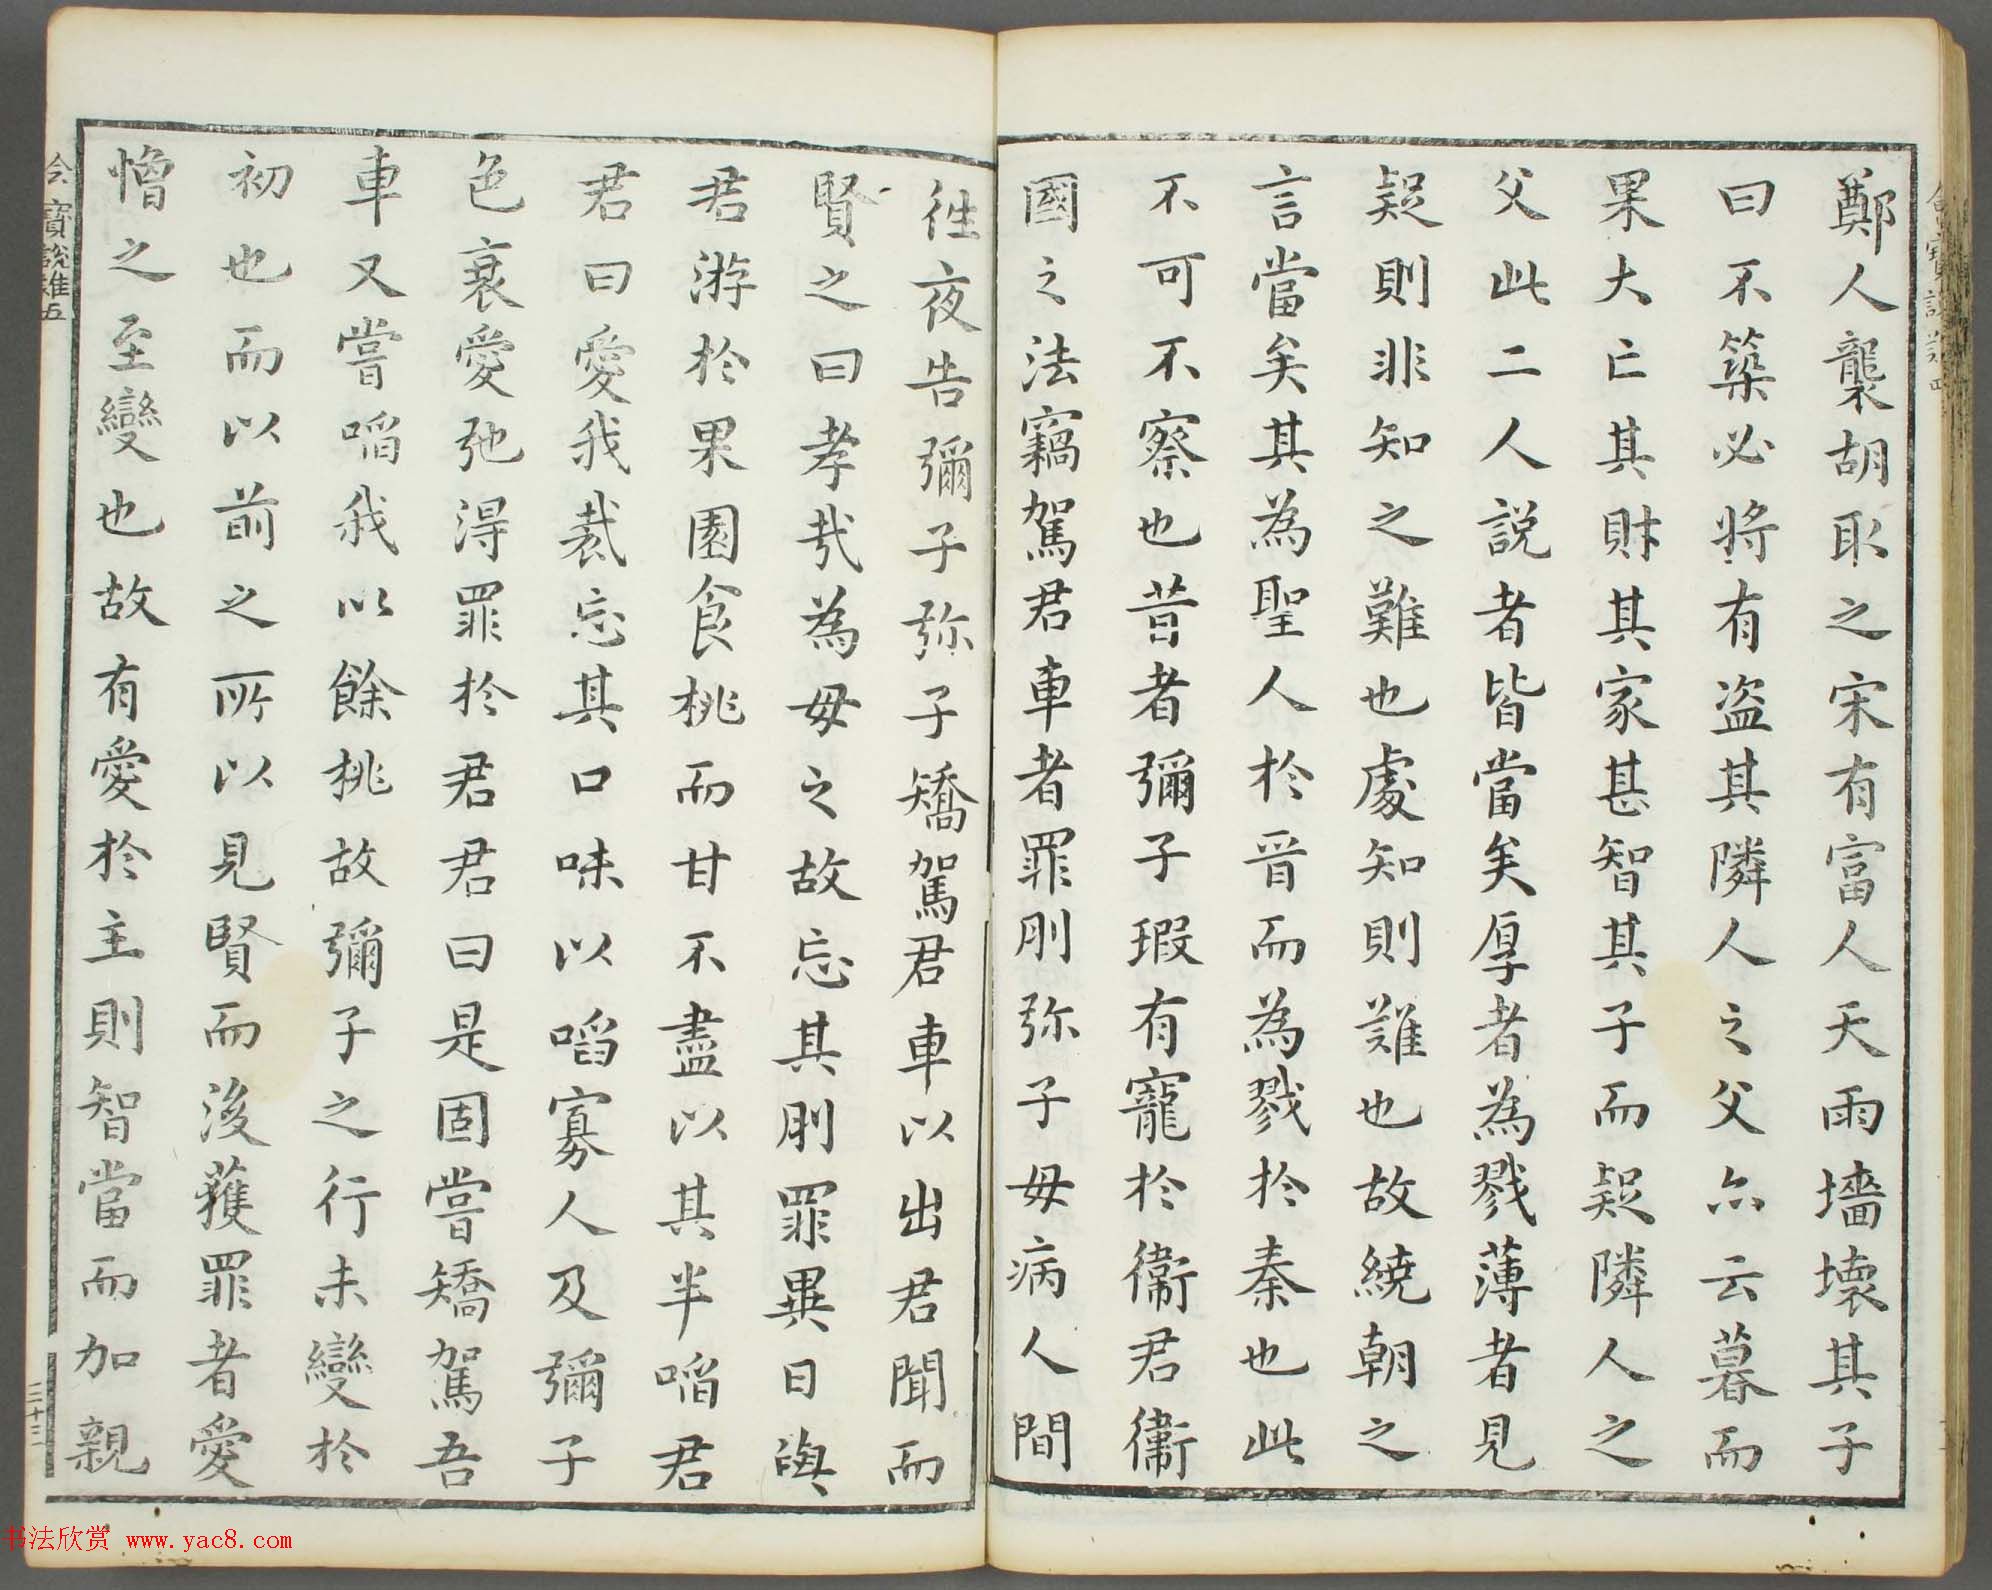 鄭人襲胡取之宋有富人天雨墻壞其子
曰不築必將有盗其隣人之父亦云暮而
果大亡其財其家甚智其子而疑隣人之
父此二人説者皆當矣厚者為戮薄者見
疑則非知之難也處知則難也故繞朝之
言當矣其為聖人於晉而為戮於秦也此
不可不察也昔者彌子瑕有寵於衞君衞
國之法竊駕君車者罪刖弥子母病人間
徃夜告彌子弥子矯駕君車以出君聞而
賢之曰孝㢤為母之故忘其刖罪異日與
君游於果園食桃而甘不盡以其半啗君
君曰愛我㢤忘其口味以啗寡人及彌子
色衰愛弛得罪於君君曰是固嘗矯駕吾
車又嘗啗我以餘桃故彌子之行未變於
初也而以前之所以見賢而後獲罪者愛
憎之至變也故有愛於主則智當而加親
說難五
二十三
书法欣赏 www.yac8.com